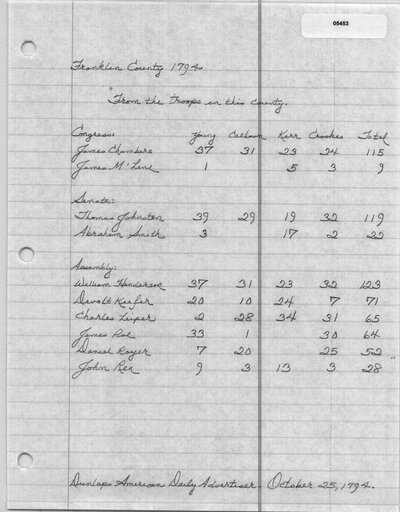 05453
Franklin County 1794
"From the troops in this County.
Congress: Young Calhoun Kerr Crookes Total
James Chambers 37 31 23 24 115
James M'Lene 1 5 3 9
Senate:
Thomas Johnston 39 29 19 32 119
Abraham Smith 3 17 2 22
Assembly:
William Henderson 37 31 23 32 123
Dewalt Keefer 20 10 24 7 71
Charles Leiper 2 28 34 31 65
James Poe 33 1 30 64
Daniel Royer 7 20 25 52
John Rea 9 3 13 3 28"
Dunlaps American Daily Advertiser. October 25, 1794.